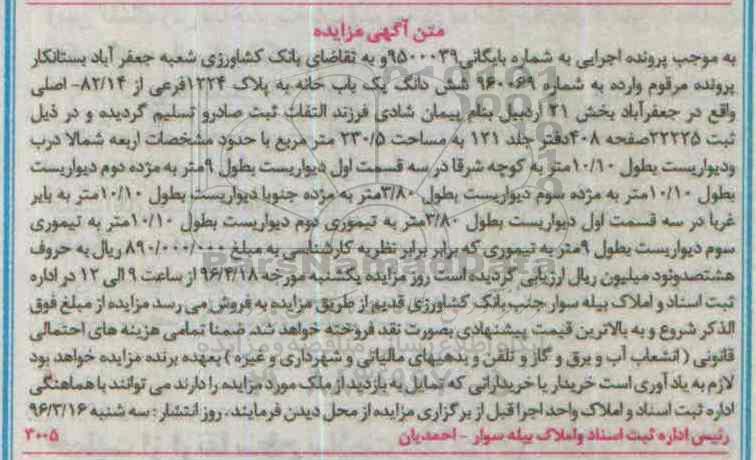 متن آگهی مزایده
به موجب پرونده اجرایی به شماره بایگانی۹۵۰۰۰۳۹و به تقاضای بانک کشاورزی شعبه جعفر آباد بستانکار
پرونده مرقوم وارده به شماره ۹۶۰۰۶۹ شش دانگ یک باب خانه به پلاک ۱۲۲۴فرعی از ۸۲/۱۴- اصلی
واقع در جعفرآباد بخش ۲۱ اردبیل بنام پیمان شادی فرزند التفات ثبت صادرو تسلیم گردیده و در ذیل
ثبت ۲۲۲۲۵صفحه ۴۰۸دفتر جلد ۱۲۱ به مساحت ۲۳۰/۵ متر مربع با حدود مشخصات اربعه شمالا درب
ودیواریست بطول ۱۰/۱۰متر به کوچه شرقا در سه قسمت اول دیواریست بطول ۹متر به مژده دوم دیواریست
بطول ۱۰/۱۰متر به مژده سوم دیواریست بطول ۳/۸۰متر به مژده جنوبا دیواریست بطول ۱۰/۱۰متر به بایر
غربا در سه قسمت اول دیواریست بطول ۳/۸۰متر به تیموری دوم دیواریست بطول ۱۰/۱۰متر به تیموری
سوم دیواریست بطول ۹متر به تیموری که برابر برابر نظریه کارشناسی به مبلغ ۸۹۰/۰۰۰/۰۰۰ ریال به حروف
هشتصدونود میلیون ریال ارزیابی گردیده است روز مزایده یکشنبه مورخه ۹۶/۴/۱۸ از ساعت ۹ الی ۱۲ در اداره
ثبت اسناد و املاک بیله سوار جانب بانک کشاورزی قدیم از طریق مزایده به فروش می رسد مزایده از مبلغ فوق
الذکر شروع و به بالاترین قیمت پیشنهادی بصورت نقد فروخته خواهد شد. ضمنا تمامی هزینه های احتمالی
قانونی ( انشعاب آب و برق و گاز و تلفن و بدهیهای مالیاتی و شهرداری و غیره ) بعهده برنده مزایده خواهد بود
لازم به یاد آوری است خریدار یا خریدارانی که تمایل به بازدید از ملک مورد مزایده را دارند می توانند با هماهنگی
اداره ثبت اسناد و املاک واحد اجرا قبل از برگزاری مزایده از محل دیدن فرمایند. روز انتشار: سه شنبه ۹۶/۳/۱۶
رئیس اداره ثبت اسناد واملاک بیله سوار - احمدیان
۳۰۰۵
ParsNamadData